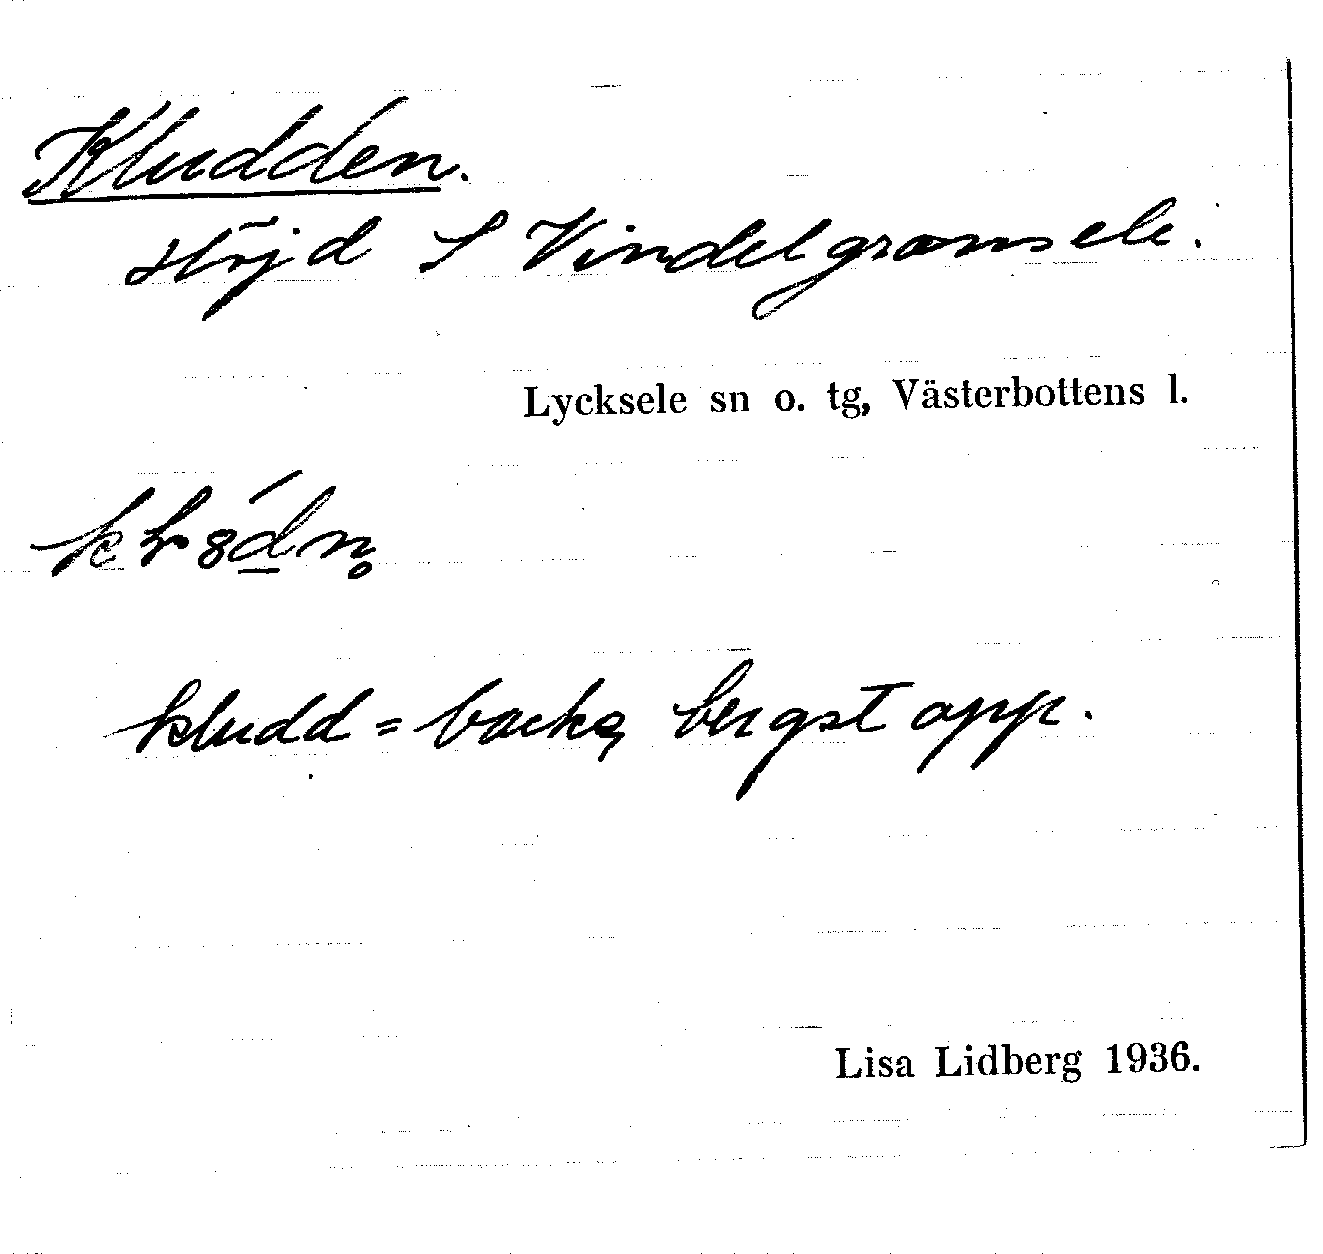 Kludden.
Höjd S Vindelgransele.
Lycksele sn o. tg, Västerbottens l.
kludd = backe, bergstopp.
Lisa Lidberg 1936.